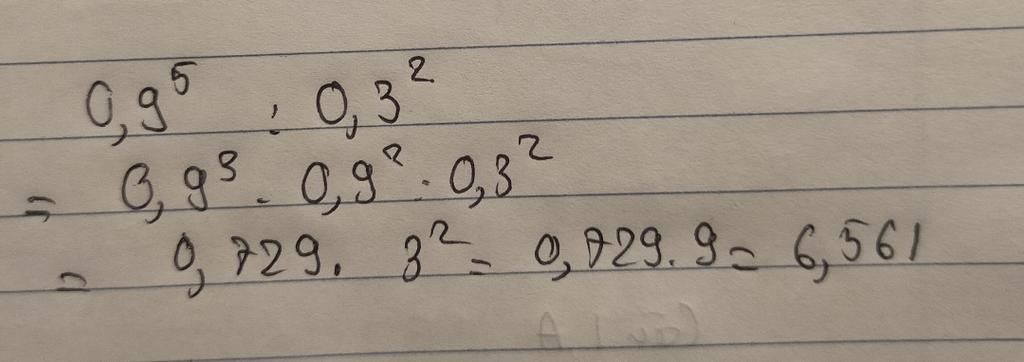 0,9⁵ : 0,3²
= 0,9³ . 0,9² : 0,3²
= 0,729 . 3² = 0,729 . 9 = 6,561